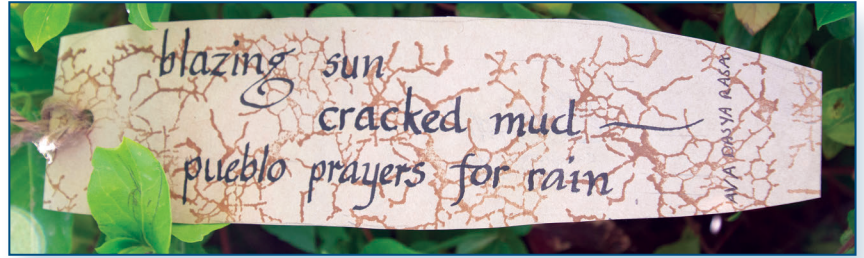 blazing sun
cracked mud —
pueblo prayers for rain
AVA DASYA RASA